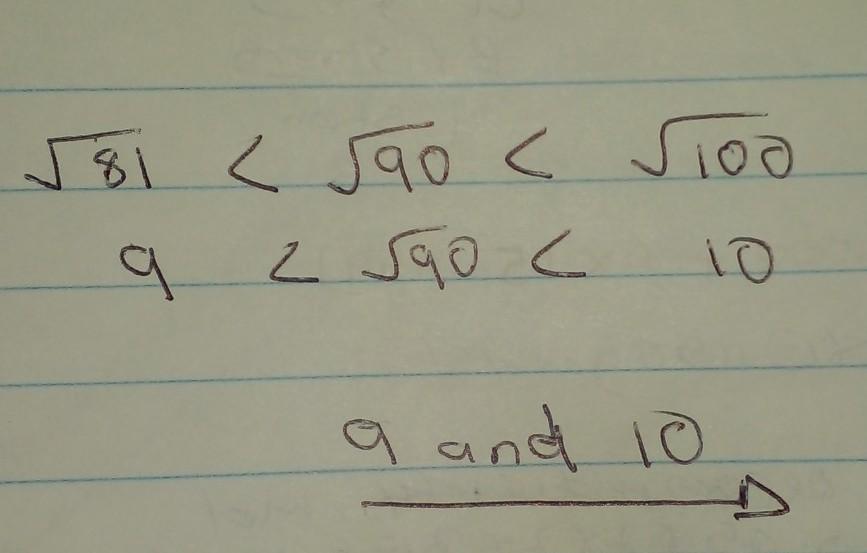 √81 < √90 < √100
9 < √90 < 10
9 and 10